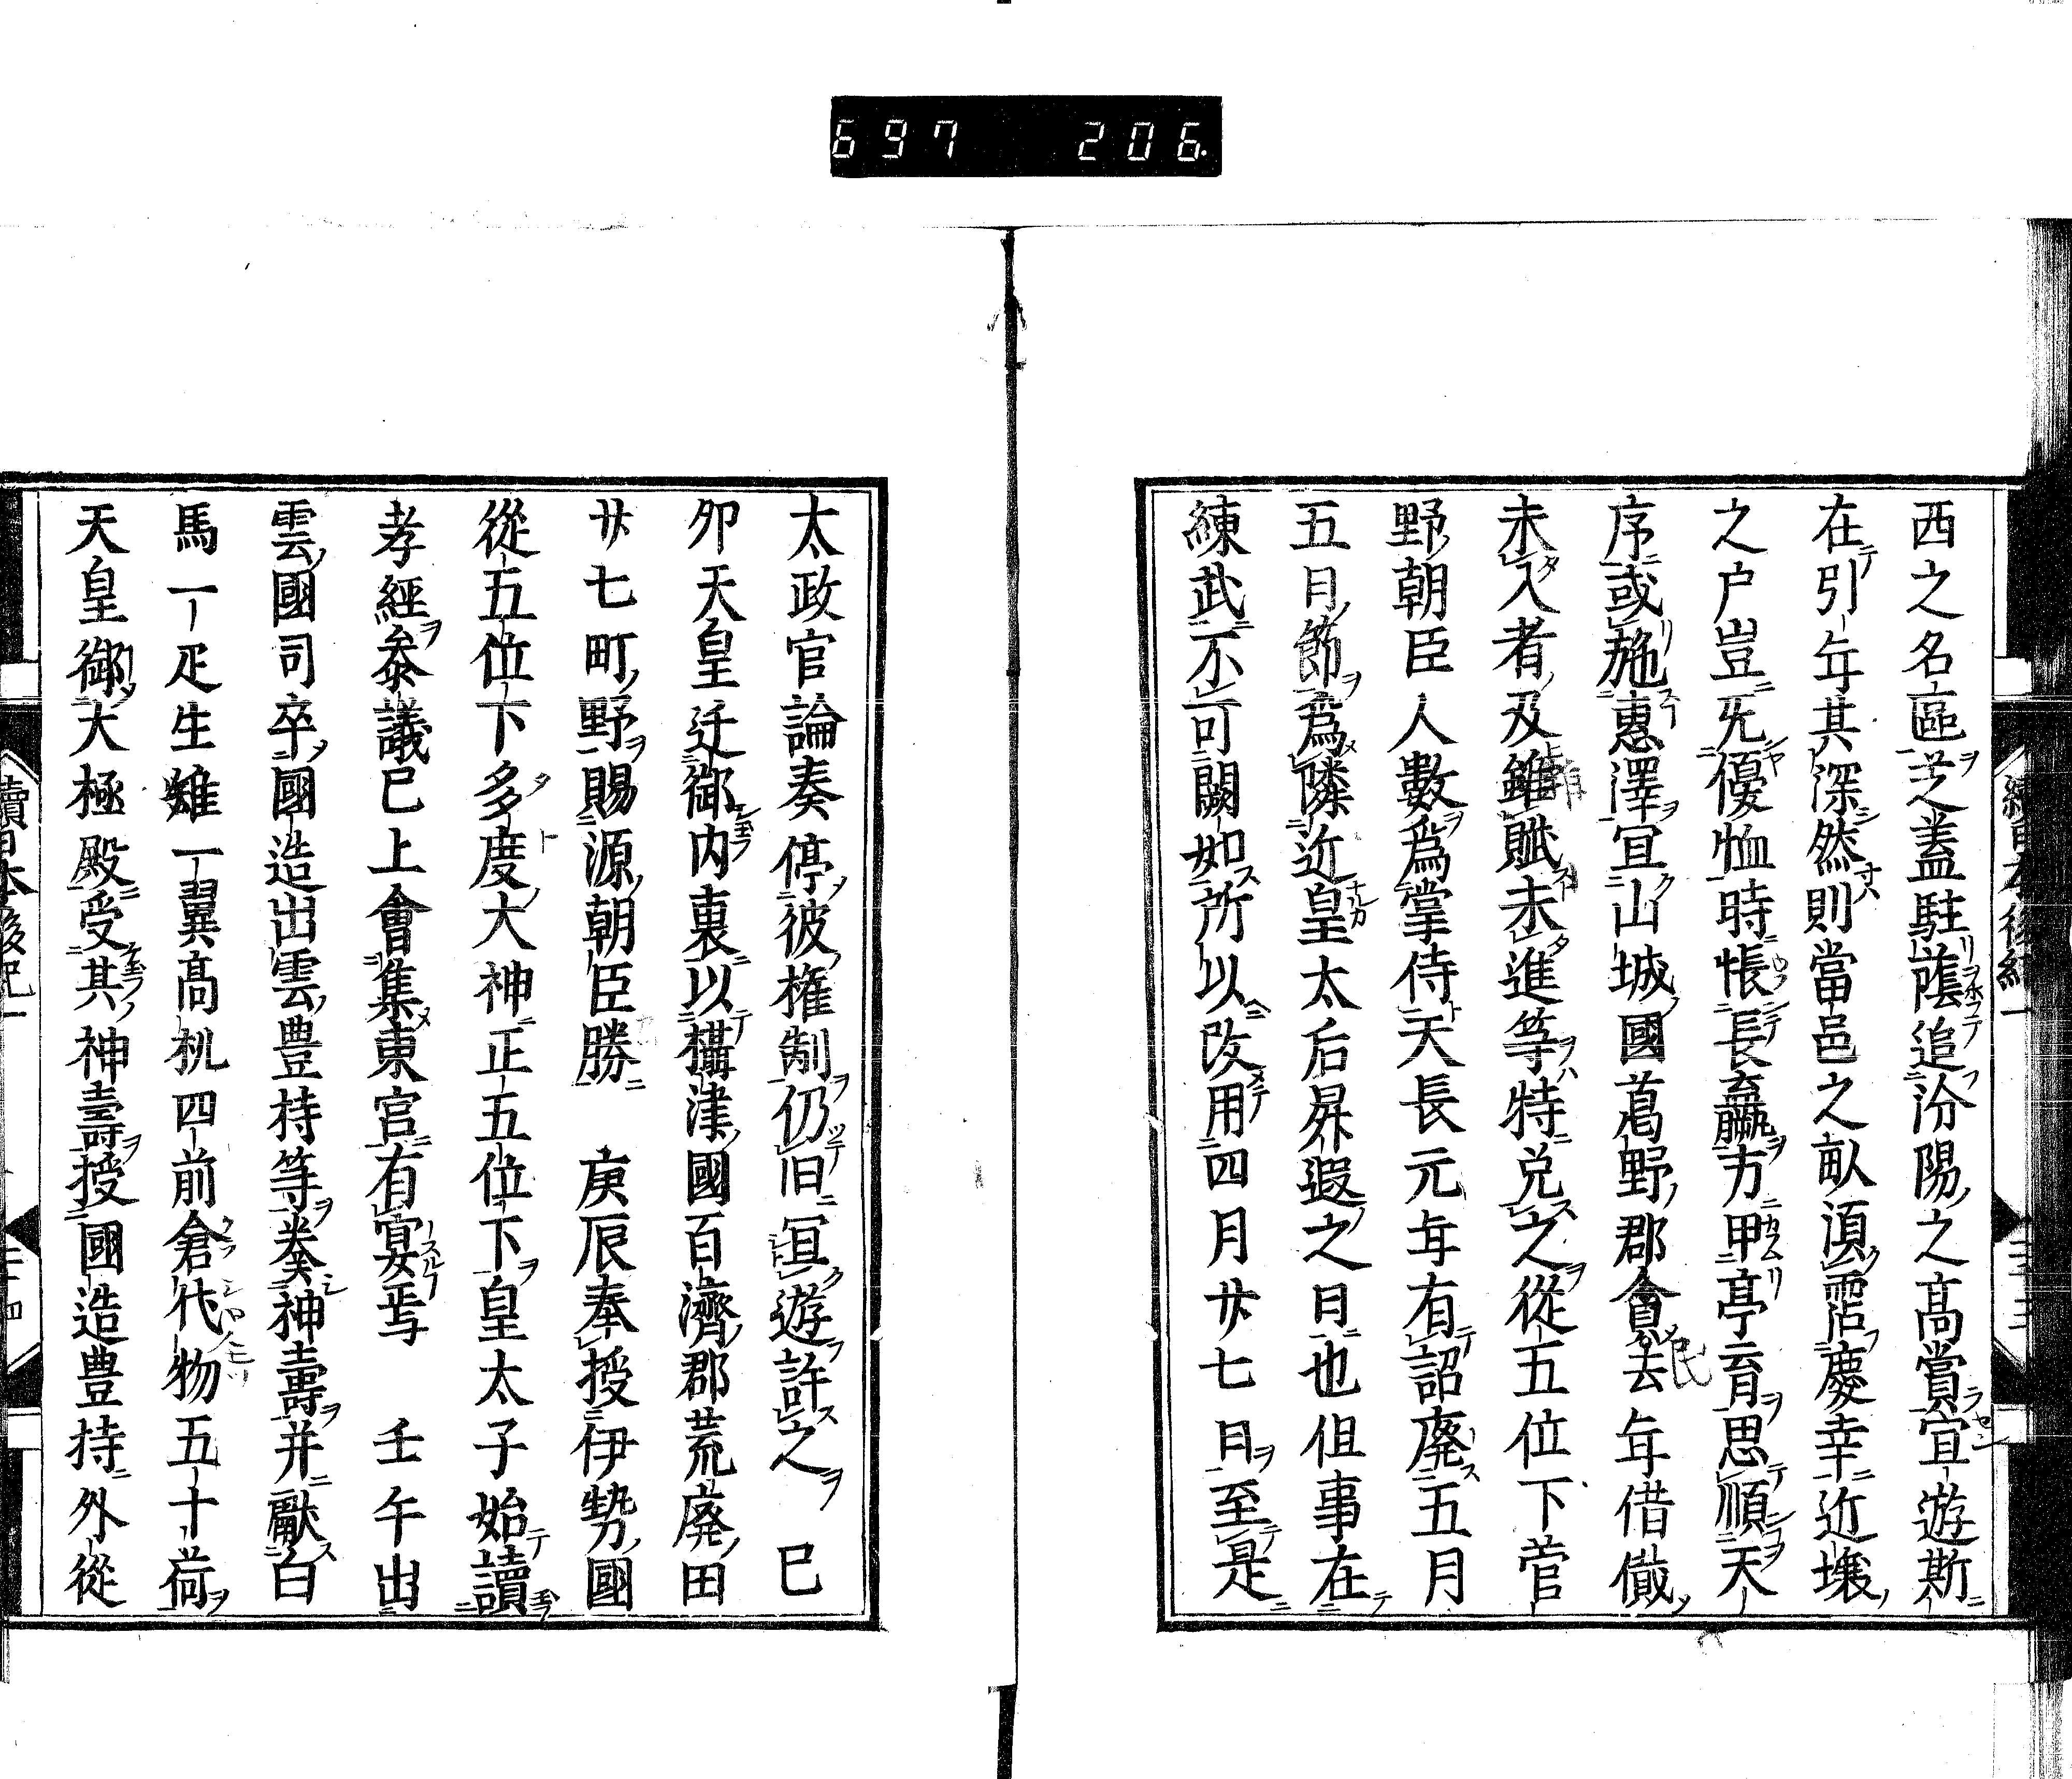 697 206.
西之名區芝蓋駐蔭追汾陽之高賞宜遊斯
在引年其深然則當邑之畝湏霑慶幸近壤
之戸豈旡優恤時悵長羸方甲亭育思順天
序或施惠澤宜山城國葛野郡會去年借儎
未入者及雖賦未進等特兌之從五位下菅
野朝臣人數爲掌侍天長元年有詔廃五月
五日節爲隣近皇太后昇遐之日也但事在
練武不可闕如所以改用四月廿七日至是
太政官論奏停彼権制仍旧冝遊許之 巳
卯天皇迁御内裏以攝津國百濟郡荒廃田
廿七町野賜源朝臣勝 庚辰奉授伊勢國
從五位下多度大神正五位下皇太子始讀
孝經叅議已上會集東宮有宴焉 壬午出
雲國司卒國造出雲豊持等奏神壽并獻白
馬一疋生雉一翼高机四前倉代物五十荷
天皇御大極殿受其神壽授國造豊持外從
續日本後紀一